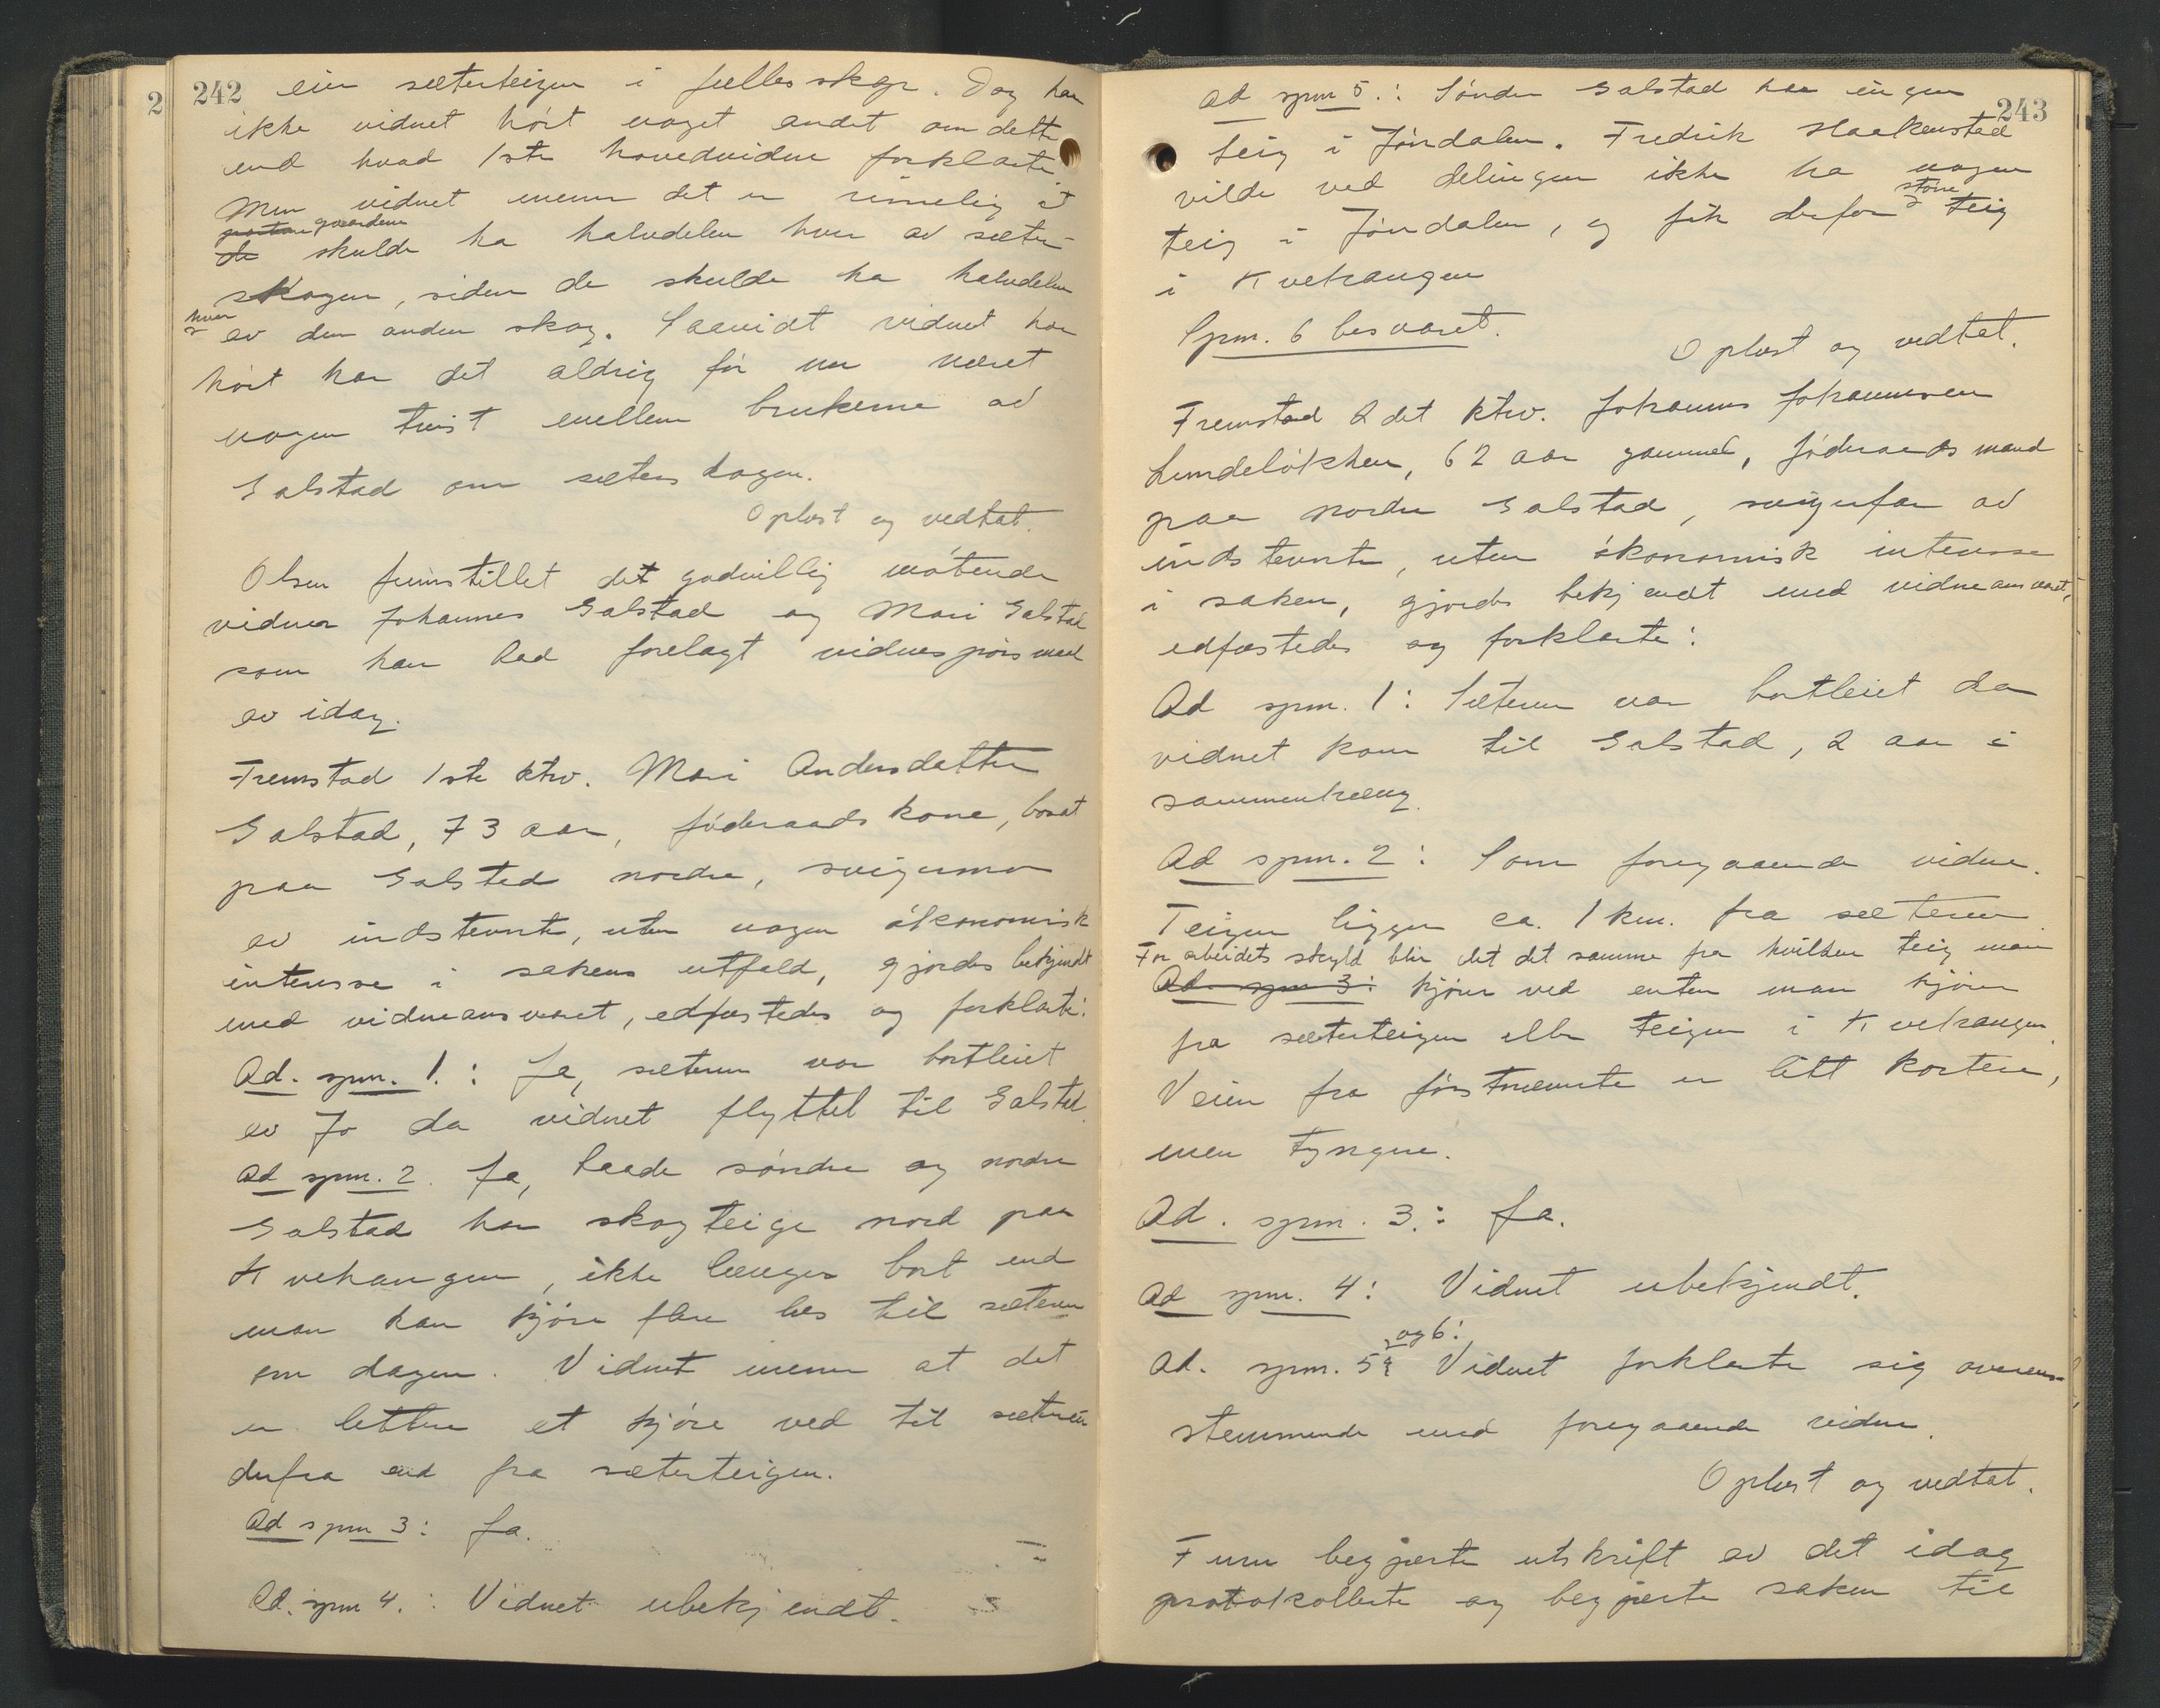 242
eier sæterteigen i fællesskap. Dog har
ikke vidnet hørt noget andet om dette
end hvad 1ste hovedvidne forklarte
Men vidnet mener det er rimelig at
gaardene
de skulde ha halvdelen hver av sæter-
skogen, siden de skulde ha halvdelen
hver
av den anden skog. Saavidt vidnet har
hørt har det aldrig før nu været
nogen tvist mellem brukerne av
Galstad om sæterskogen.
Oplæst og vedtat.
Olsen fremstillet det godvillig møtende
vidner Johannes Galstad og Mari Galstad
som han lad forelagt vidnespørsmaal
av idag.
Fremstod 1ste ktrv. Mari Andersdatter
Galstad, 73 aar, føderaadskone, bosat
paa Galstad nordre, svigermor
av indstevnte, uten nogen økonomisk
interesse i sakens utfald, gjordes bekjendt
med vidneansvaret, edfæstedes og forklarte:
Ad. spm. 1.: Ja, sæteren var bortleiet
av Jo da vidnet flyttet til Galstad.
Ad spm. 2. Ja, baade søndre og nordre
Galstad har skogteige nord paa
Kvehaugen, ikke længer bort end
man kan kjøre flere læs til sæteren
om dagen. Vidnet mener at det
er lettere at kjøre ved til sæteren
derfra end fra sæterteigen.
Ad spm 3: Ja.
Ad. spm 4.: Vidnet ubekjendt.
243
Ad spm 5.: Søndre Galstad har ingen
teig i Jøndalen. Fredrik Haakenstad
vilde ved delingen ikke ha nogen
større
teig i Jøndalen, og fik derfor teig
i Kvehaugen
Spm. 6 besvaret.
Oplæst og vedtat.
Fremstod 2det ktrv. Johannes Johannesen
Lundeløkken, 62 aar gammel, føderaadsmand
paa nordre Galstad, svigerfar av
indstevnte, uten økonomisk interesse
i saken, gjordes bekjendt med vidneansvaret,
edfæstedes og forklarte:
Ad spm. 1: Sæteren var bortleiet da
vidnet kom til Galstad, 2 aar i
sammenhæng.
Ad spm. 2: Som foregaaende vidne.
Teigen ligger ca. 1 km. fra sæteren
For arbeidets skyld blir det det samme fra hvilken teig man
Ad. spm 3: kjører ved enten man kjører
fra sæterteigen eller teigen i Kvehaugen.
Veien fra førstnævnte er litt kortere,
men tyngre.
Ad. spm. 3.: Ja.
Ad spm. 4: Vidnet ubekjendt.
og 6:
Ad. spm. 5 Vidnet forklarte sig overens-
stemmende med foregaaende vidne.
Oplæst og vedtat.
Furu begjærte utskrift av det idag
protokollerte og begjærte saken til